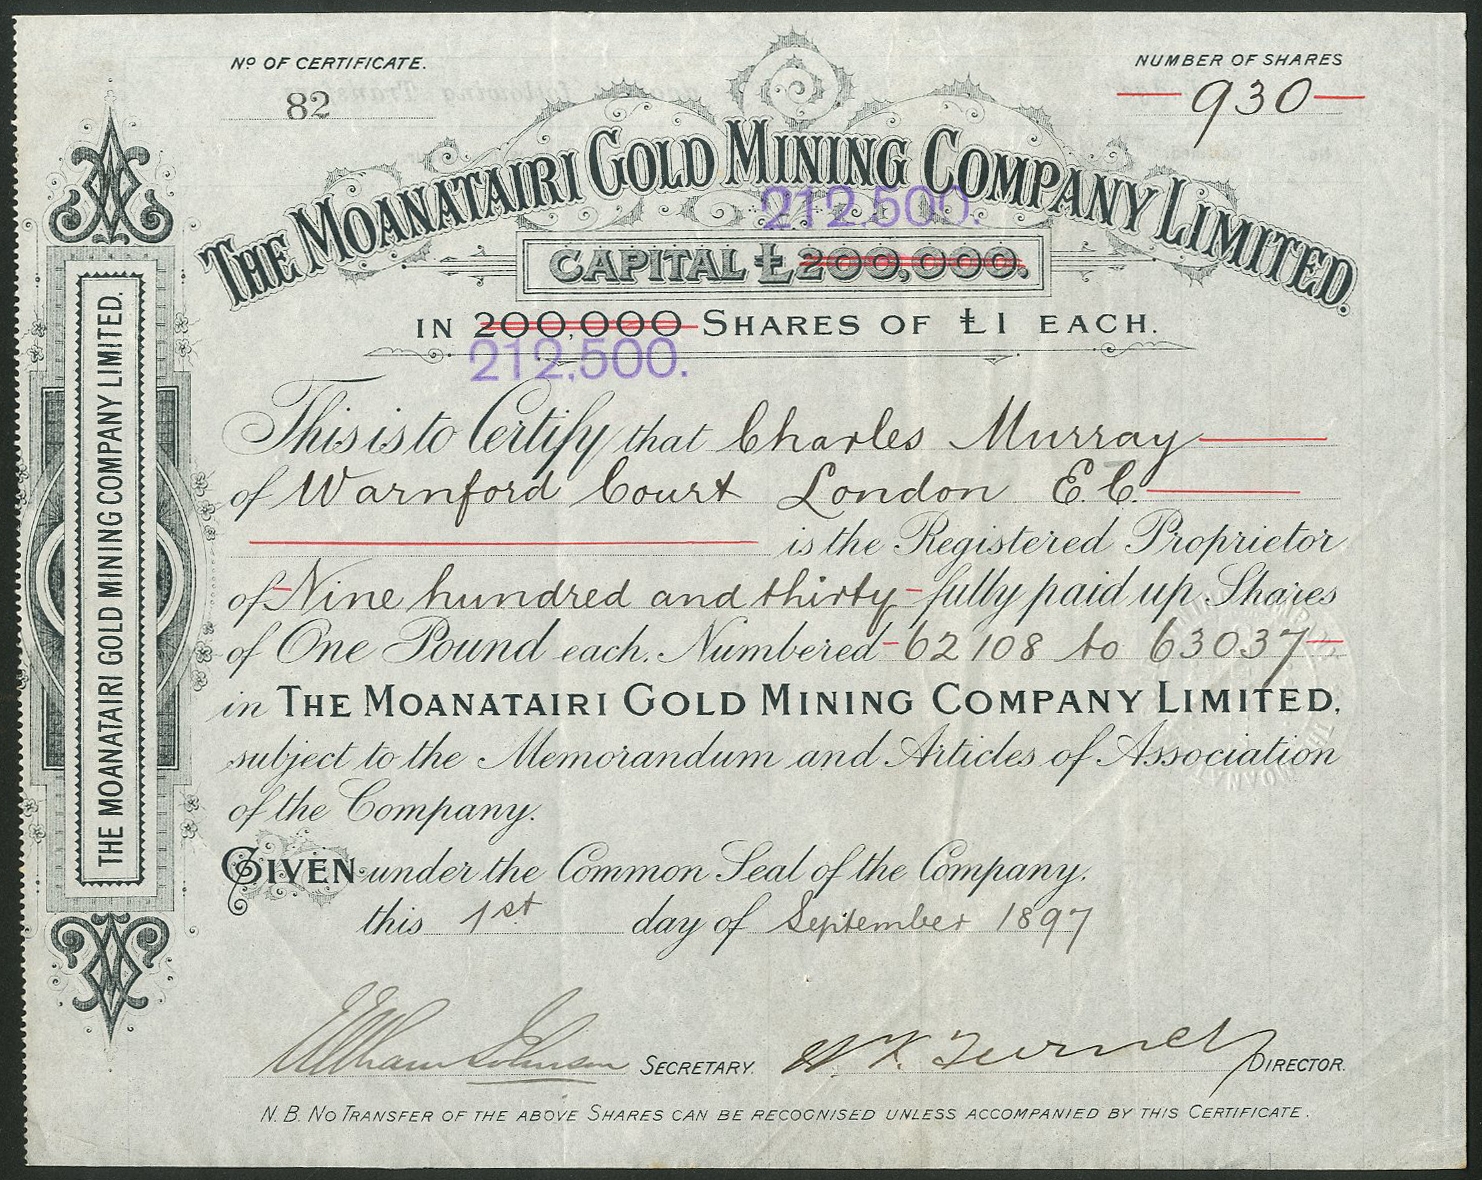 Nº OF CERTIFICATE.
82
NUMBER OF SHARES
930
THE MOANATAIRI GOLD MINING COMPANY LIMITED.
212,500.
CAPITAL £200,000.
IN 200,000 SHARES OF £1 EACH.
212,500.
This is to Certify that Charles Murray
of Warnford Court London E.C.
is the Registered Proprietor
of Nine hundred and thirty fully paid up Shares
of One Pound each. Numbered 62108 to 63037
in THE MOANATAIRI GOLD MINING COMPANY LIMITED,
subject to the Memorandum and Articles of Association
of the Company.
GIVEN under the Common Seal of the Company.
this 1st day of September 1897
William Johnson SECRETARY.
DIRECTOR.
N.B. NO TRANSFER OF THE ABOVE SHARES CAN BE RECOGNISED UNLESS ACCOMPANIED BY THIS CERTIFICATE.
THE MOANATAIRI GOLD MINING COMPANY LIMITED.